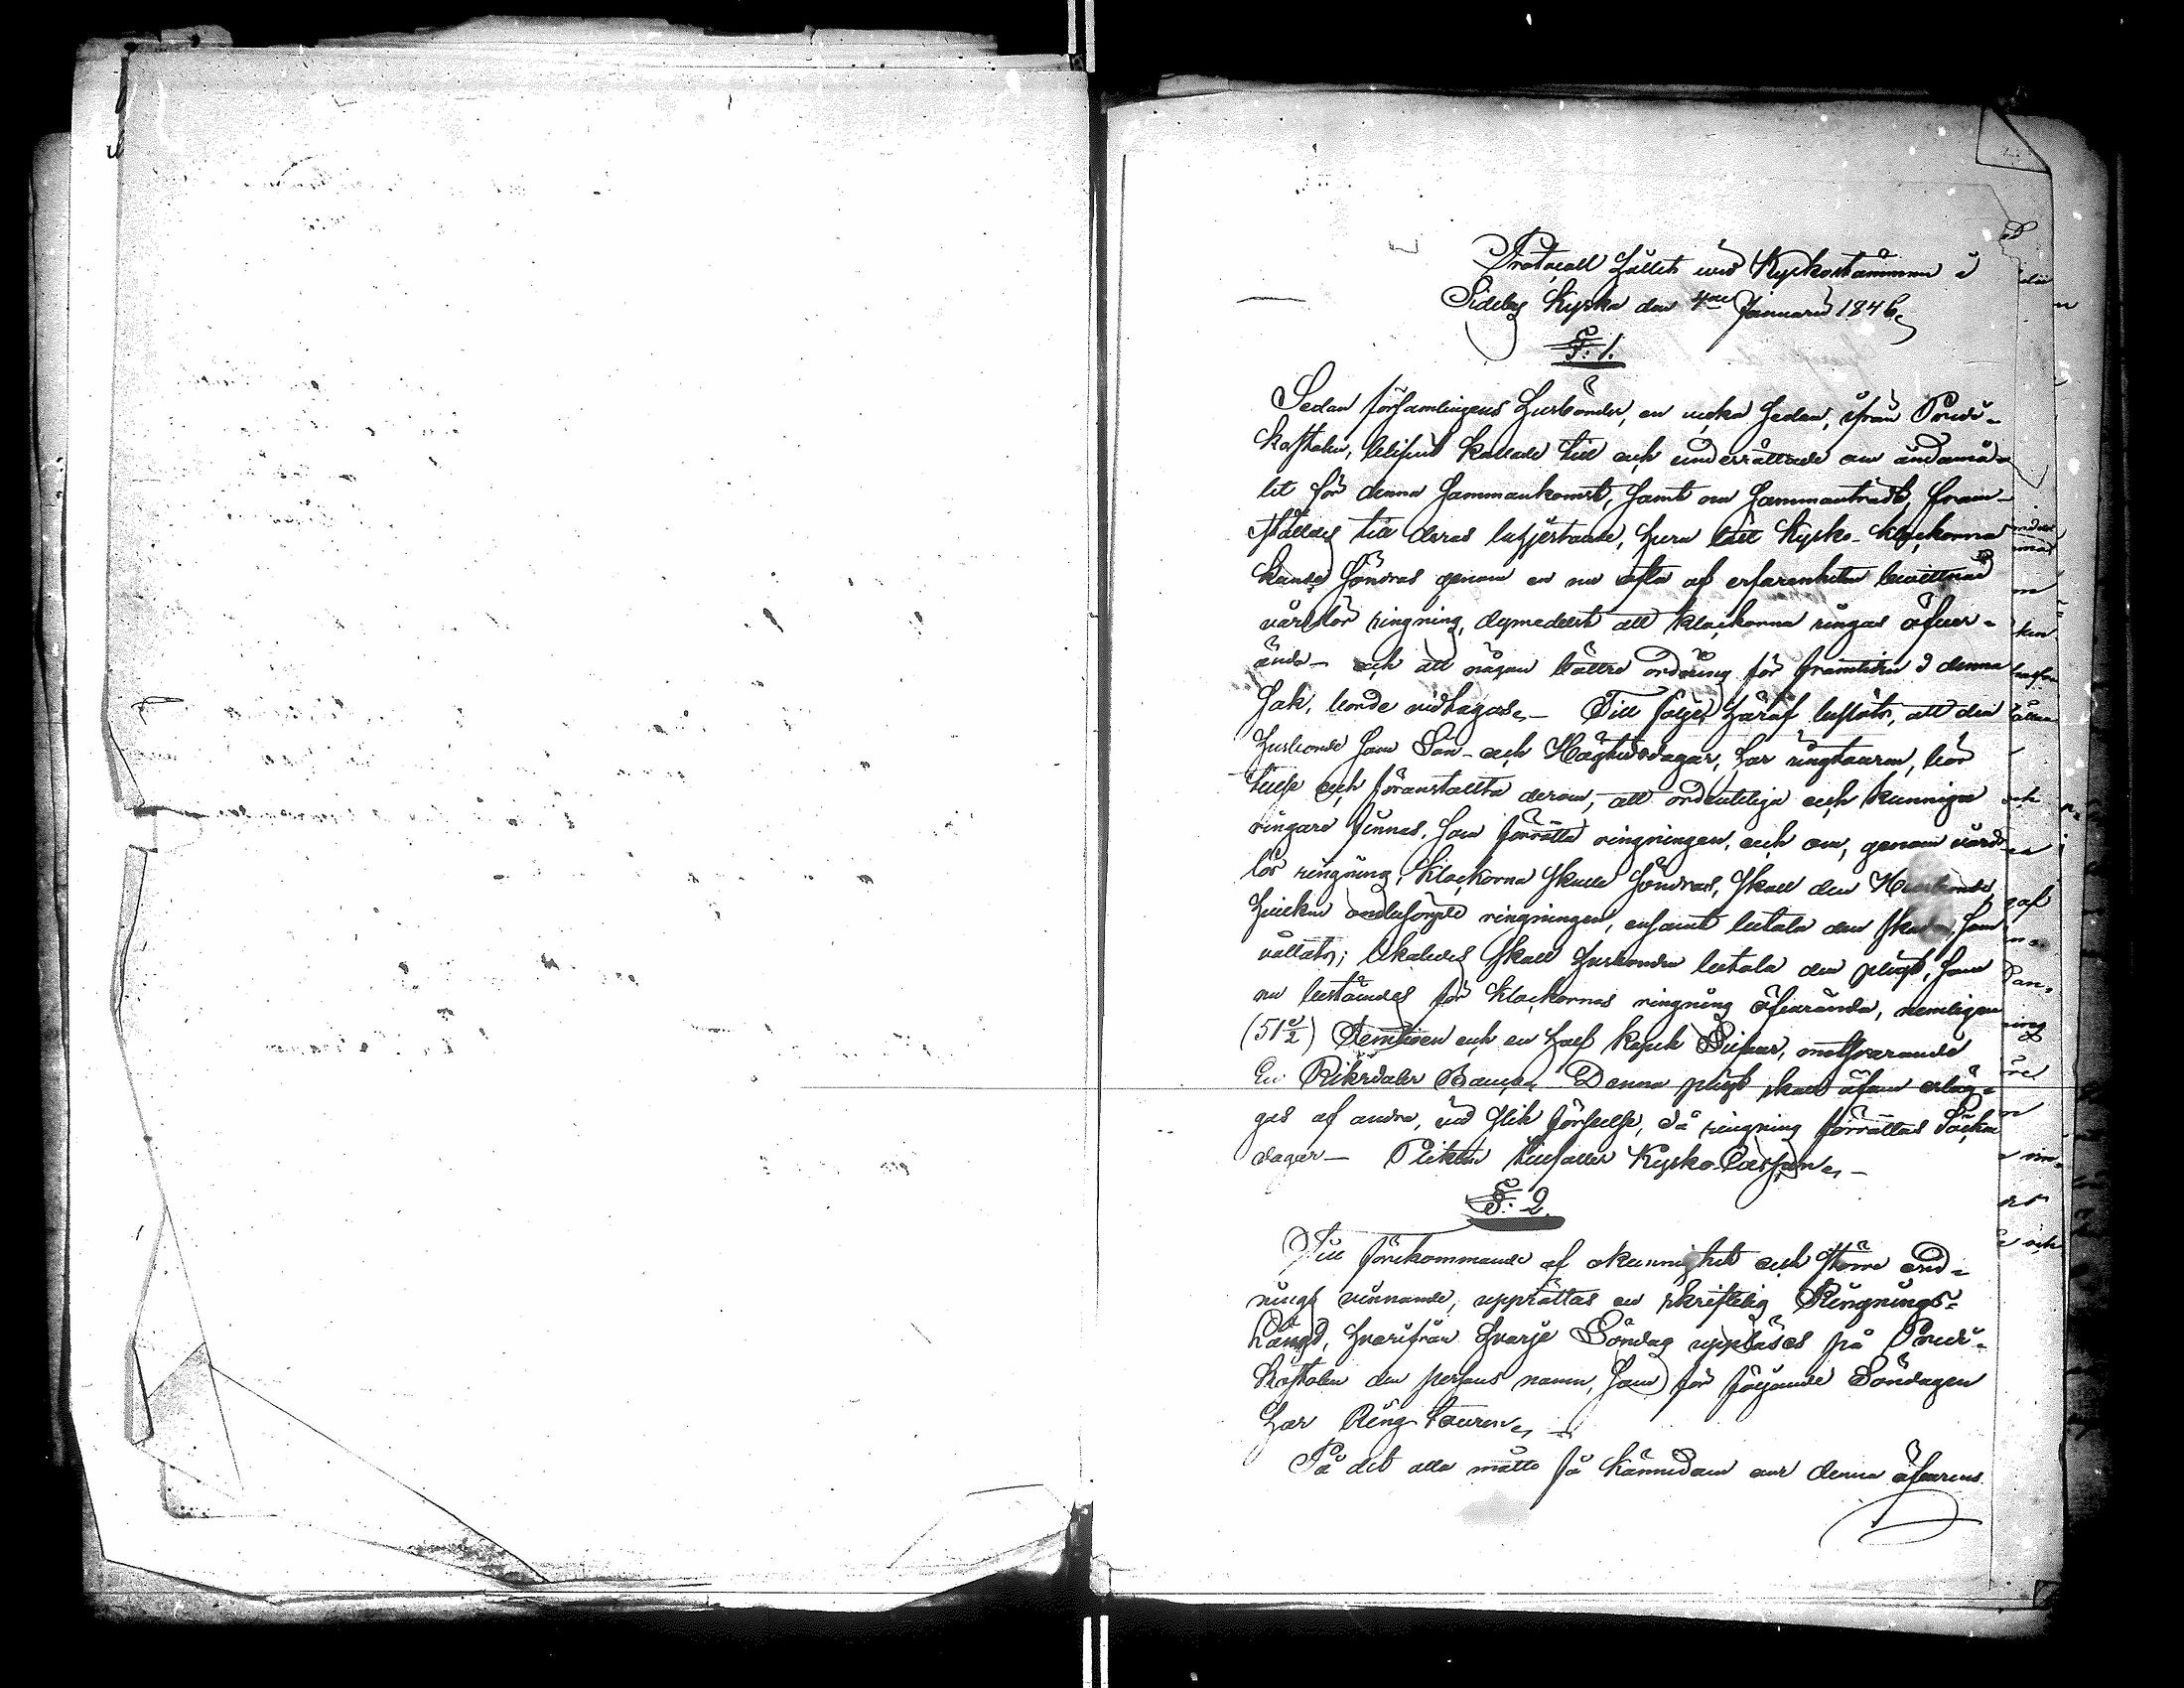 Protocoll hållet vid Kyrkostämman i
Sideby Kyrka den 4de Januarii 1846.
§. 1.
Sedan församlingens husbönder, en vecka sedan, ifrån Predi-
kostolen, blifvit kallade till och underrättade om ändamå-
let för denna sammankomst, samt nu sammanträdt, fram-
ställdes till deras besvarande, huru Kyrko-klockorna
kunde söndras genom en nu ofta af erfarenheten bevittnad
vårdslös ringning, dymedelst att klockorna ringas öfver-
ända – och att någon bättre ordning för framtiden i denna
sak, borde vidtagas. – Till följe häraf beslöts, att den
husbonde som Sön- och Högtidsdagar, har ringtouren, bör
tillse och föranstalta derom, att ordentliga och kunniga
ringare finnas, som förrätta ringningen, och om, genom vårds-
lös ringning, klockorna skulle söndras, skall den Husbonde
hvilken ombesörjde ringningen, ensamt betala den skada, som
vållats; likaledes skall husbonden betala den pligt, som
nu bestämdes för klockornas ringning öfverända, nemligen
(51 1/2) Femtioen och en half kopek Silfver, motsvarande
En Riksdaler Banco. Denna pligt skall äfven erläg-
gas af andra, vid slik förseelse, då ringning förrättas Söckne
dagar – Plikten tillfaller Kyrko-Cassan. –
§. 2.
Till förekommande af okunnighet och större ord-
nings vinnande, upprättas en skriftelig Ringnings-
Längd, hvarifrån hvarje Söndag uppläses på Predi-
kostolen den persons namn, som för följande Söndagen
har Ring-touren. –
På det alla måtte få kännedom om denna öfverens